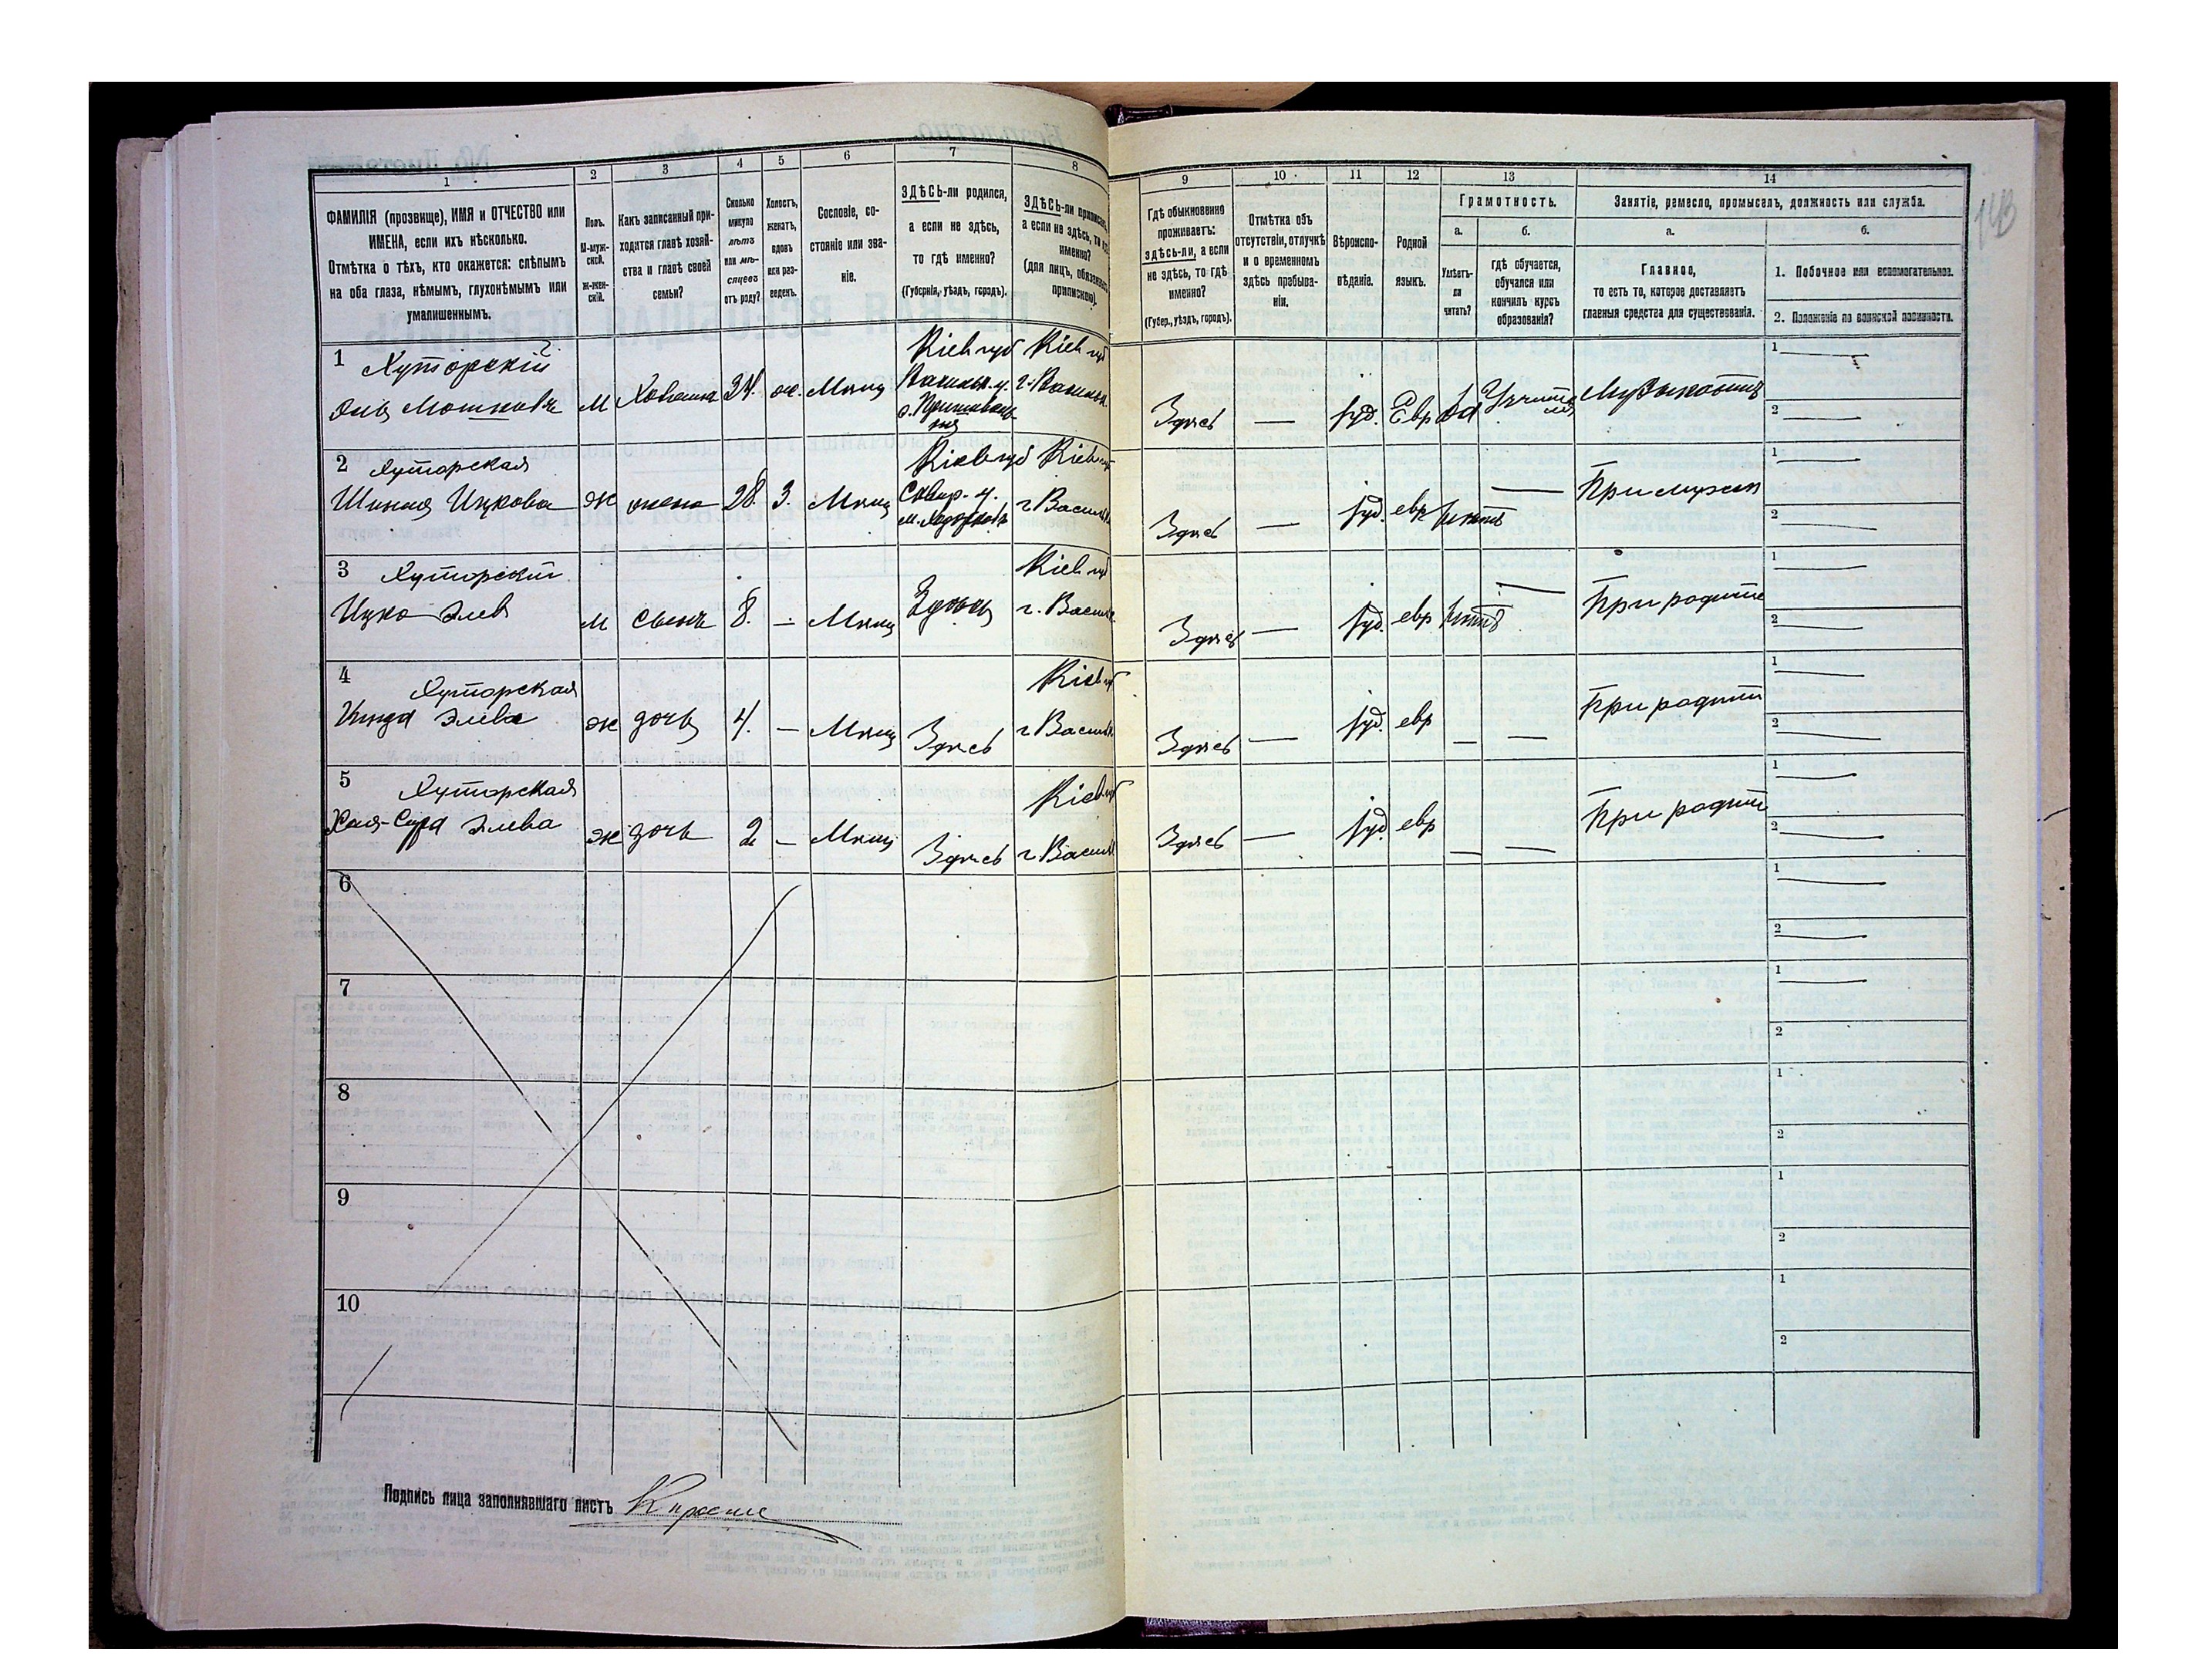 1
2
3
4
5
6
7
8
ФАМИЛІЯ (прозвище), ИМЯ и ОТЧЕСТВО или
ИМЕНА, если ихъ нѣсколько.
Отмѣтка о тѣхъ, кто окажется: слѣпымъ
на оба глаза, нѣмымъ, глухонѣмымъ или
умалишеннымъ.
Полъ.
М-муж-
ской.
Ж-жен-
скій.
Какъ записанный при-
ходится главѣ хозяй-
ства и главѣ своей
семьи?
Сколько
минуло
лѣтъ
или мѣ-
сяцевъ
отъ роду?
Холостъ,
женатъ,
вдовъ
или раз-
веденъ.
Сословіе, со-
стояніе или зва-
ніе.
ЗДѢСЬ-ли родился,
а если не здѣсь,
то гдѣ именно?
(Губернія, уѣздъ, городъ).
ЗДѢСЬ-ли приписанъ,
а если не здѣсь, то гдѣ
именно?
(для лицъ, обязанныхъ
припискою).
9
10
11
12
13
14
Гдѣ обыкновенно
проживаетъ:
здѣсь-ли, а если
не здѣсь, то гдѣ
именно?
(Губер., уѣздъ, городъ).
Отмѣтка объ
отсутствіи, отлучкѣ
и о временномъ
здѣсь пребыва-
ніи.
Вѣроиспо-
вѣданіе.
Родной
языкъ.
Грамотность.
а.
б.
Умѣетъ-
ли
читать?
гдѣ обучается,
обучался или
кончилъ курсъ
образованія?
Занятіе, ремесло, промыселъ, должность или служба.
а.
б.
Главное,
то есть то, которое доставляетъ
главныя средства для существованія.
1. Побочное или вспомогательное.
2. Положеніе по воинской повинности.
1 Хуторскій
Мошковъ М 34. ж. Мѣщ
Кіев губ
Васильк. у.
Кіев губ
г. Васильк.
Здѣсь — Іуд. Евр да
1
2
2 Хуторская
Шинця Ицкова ж жена 28 З. Мѣщ
Кіев губ
Сквир. у.
м. Ходорковъ
Кіев губ
г Васильк
Здѣсь — Іуд. евр нѣтъ — При мужѣ
1
2
3 Хуторскій
Ицко Элев М сынъ 8. — Мѣщ
Здѣсь
Кіев губ
г. Васильк
Здѣсь — Іуд. евр нѣтъ — При родите
1
2
4 Хуторская
Элева ж дочь 4. — Мѣщ Здѣсь
Кіев губ
г Васильк
Здѣсь — Іуд. евр — — При родит
1
2
5 Хуторская
Хая-Сура Элева ж дочь 2 — Мѣщ Здѣсь
Кіев губ
г Васильк
Здѣсь — Іуд. евр — — При родит
1
2
6
1
2
7
1
2
8
1
2
9
1
2
10
1
2
Подпись лица заполнявшаго листъ